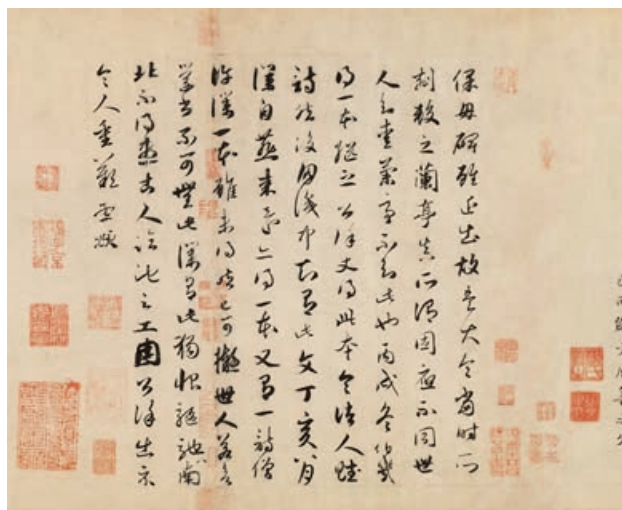 保母碑雖近出故是大令當時所
刻較之蘭亭真所謂固應不同世
人知愛蘭亭不知此也丙戌冬伯幾
得一本繼之公謹丈得此本令諸人賦
詩然後朋識中知有此文丁亥八月
僕自燕來還亦得一本又有一詩僧
許僕一本雖未得然已可擬世人若欲
學書不可無此僕有此獨恨驅馳南
北不得盡古人臨池之工因公謹出示
令人重歎孟頫